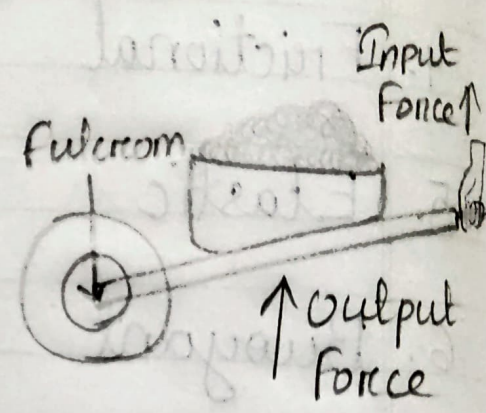 Input
Force ↑
Fulcrom
↑ Output
Force